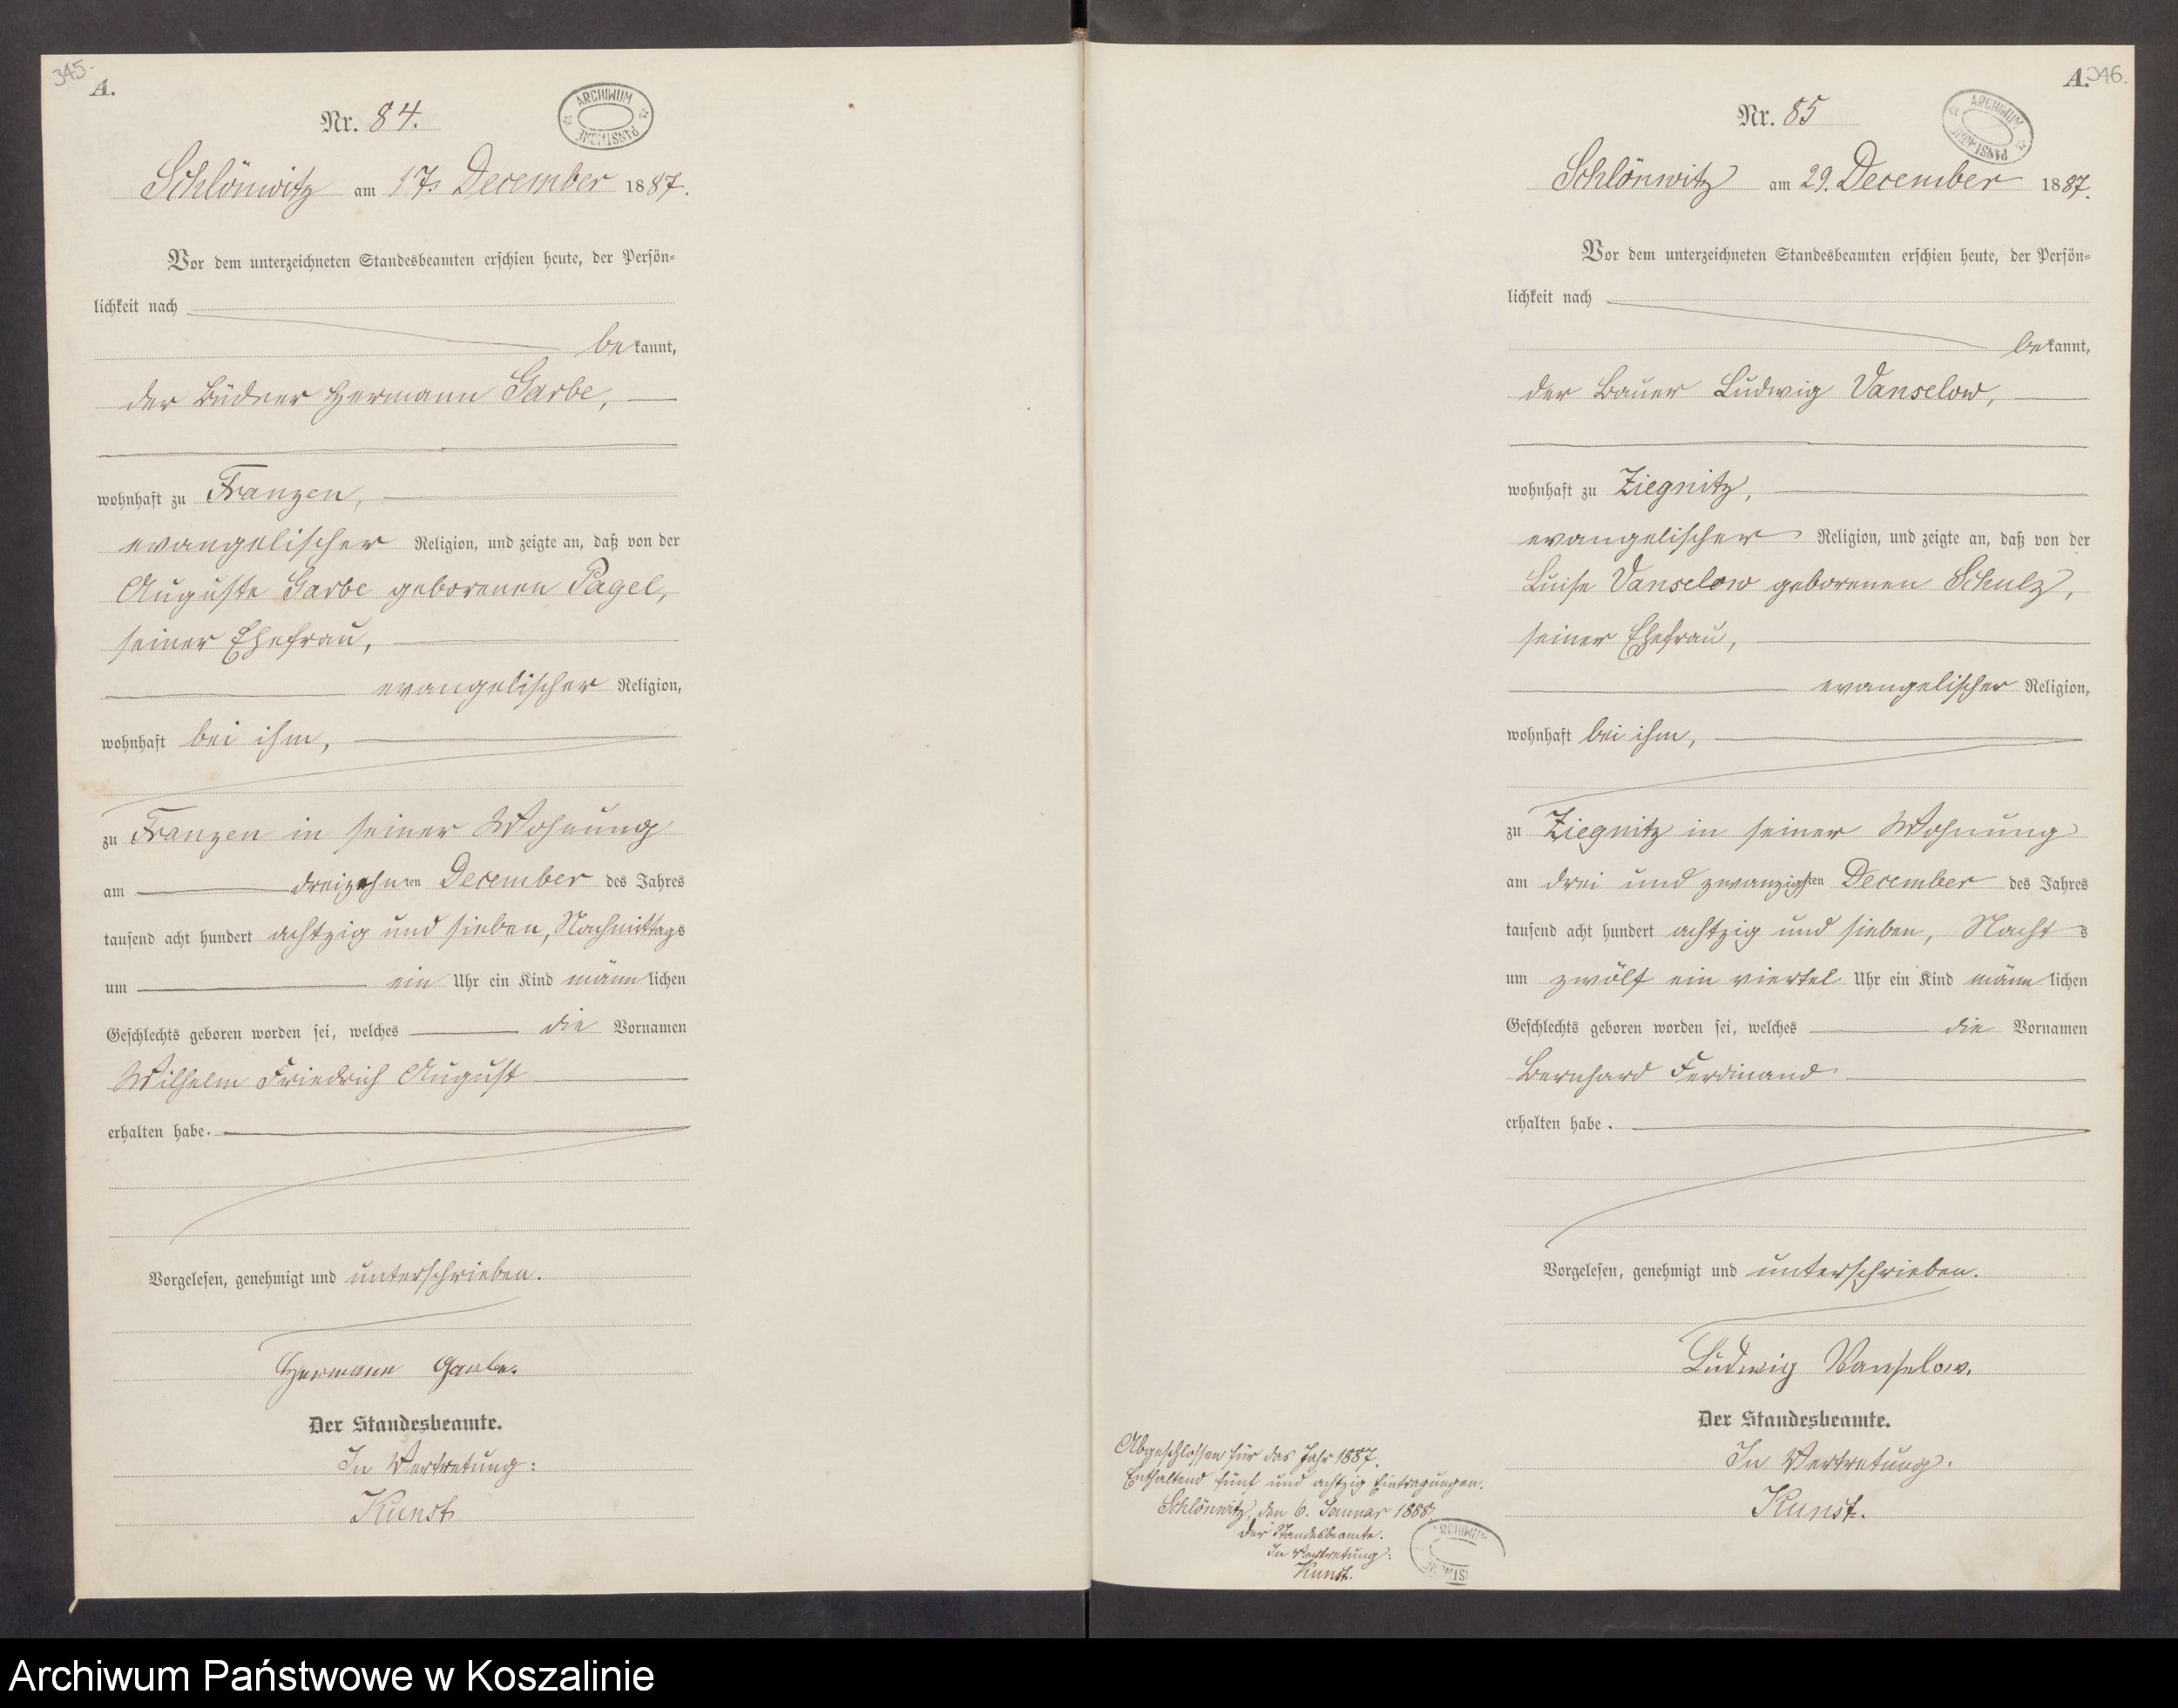 345.
A.
ARCHIWUM PAŃSTWOWE
Nr. 84.
Schlönwitz am 17. December 1887.
Vor dem unterzeichneten Standesbeamten erschien heute, der Persön=
lichkeit nach
bekannt,
der Büdner Hermann Garbe,
wohnhaft zu Franzen,
evangelischer Religion, und zeigte an, daß von der
Auguste Garbe geborenen Pagel,
seiner Ehefrau,
evangelischer Religion,
wohnhaft bei ihm,
zu Franzen in seiner Wohnung
am dreizehnten December des Jahres
tausend acht hundert achtzig und sieben, Nachmittags
um ein Uhr ein Kind männlichen
Geschlechts geboren worden sei, welches die Vornamen
Wilhelm Friedrich August
erhalten habe.
Vorgelesen, genehmigt und unterschrieben.
Hermann Garbe.
Der Standesbeamte.
In Vertretung:
Kunst
346.
A.
ARCHIWUM PAŃSTWOWE
Nr. 85
Schlönwitz am 29. December 1887.
Vor dem unterzeichneten Standesbeamten erschien heute, der Persön=
lichkeit nach
bekannt,
der Bauer Ludwig Vanselow,
wohnhaft zu Ziegnitz,
evangelischer Religion, und zeigte an, daß von der
Luise Vanselow geborenen Schulz,
seiner Ehefrau,
evangelischer Religion,
wohnhaft bei ihm,
zu Ziegnitz in seiner Wohnung
am drei und zwanzigsten December des Jahres
tausend acht hundert achtzig und sieben, Nachts
um zwölf ein viertel Uhr ein Kind männlichen
Geschlechts geboren worden sei, welches die Vornamen
Bernhard Ferdinand
erhalten habe.
Vorgelesen, genehmigt und unterschrieben.
Ludwig Vanselow.
Der Standesbeamte.
In Vertretung.
Kunst.
Abgeschlossen für das Jahr 1887.
Enthaltend fünf und achtzig Eintragungen.
Schlönwitz, den 6. Januar 1888
Der Standesbeamte.
In Vertretung:
Kunst.
Archiwum Państwowe w Koszalinie